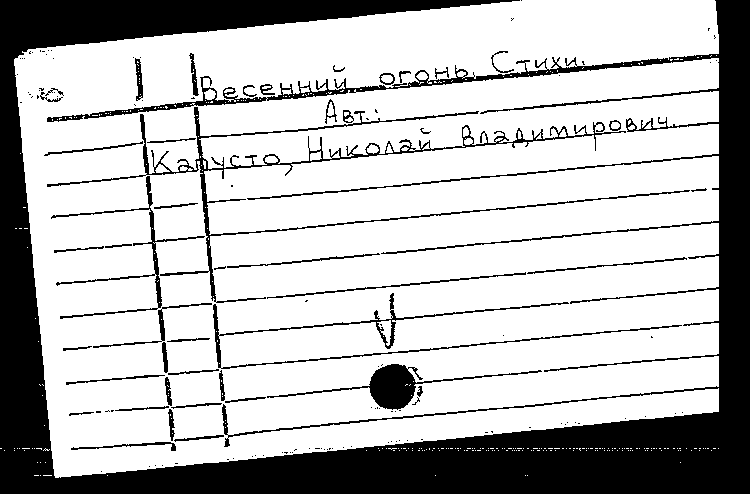 Весенний огонь. Стихи.
Авт.:
Капусто, Николай Владимирович.